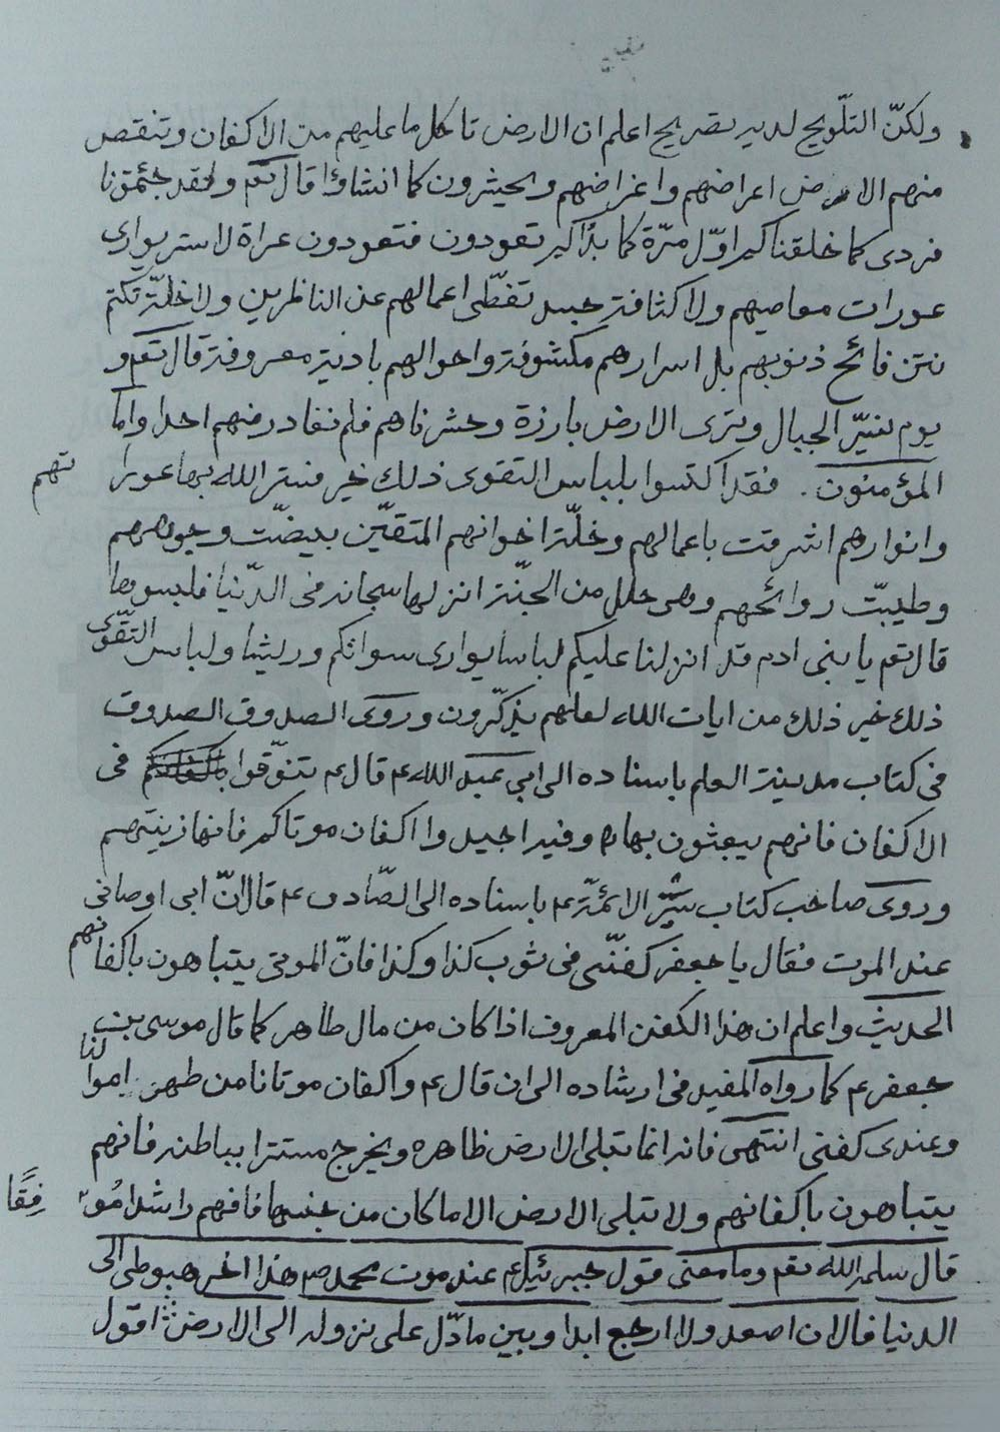 ولكنّ التلّويح لديه تصريح اعلم ان الارض تاكل ما عليهم من الاكفان وتنقص
منهم الارض اعراضهم واغراضهم ويحيشرون كما انشاؤا قال تعم ولقد جئتمونا
فردى كما خلقناكم اوّل مرّة كما بدأكم تعودون فتعودون عراة لا ستر يوارى
عورات معاصيهم ولا كثافة جسد تغطّى اعمالهم عن الناظرين ولا خلّة تكتم
نتن فائح ذنوبهم بل اسرارهم مكشوفة واحوالهم بادية معروفة قال تعم و
يوم نسيّر الجبال وترى الارض بارزة وحشرناهم فلم نغادر منهم احدا وامّا
المؤمنون . فقد اكتسوا بلباس التقوى ذلك خير فستر الله بها عوراتهم
وانوارهم اشرقت باعمالهم وخلّة اخوانهم المتقيّن بيضّت وجوههم
وطيبّت روائحهم وهى حلل من الجنّة انزلها سبحانه فى الدّنيا فلبسوها
قال تعم يا بنى ادم قد انزلنا عليكم لباسا يوارى سوائكم وريشا ولباس التقّوى
ذلك خير ذلك من ايات الله لعلهم يذكّرون وروى الصدوق الصدوق
فى كتاب مدينة العلم باسناده الى ابى عبد الله ع قال ع تنوّقوا فى
الاكفان فانهم يبعثون بها وفيه اجيدوا اكفان موتاكم فانها زينتهم
وروى صاحب كتاب سيَر الائمّة ع باسناده الى الصّادق ع قال انّ ابى اوصانى
عند الموت فقال يا جعفر كفنّى فى ثوب كذا وكذا فانّ الموتى يتباهون باكفانهم
الحديث واعلم ان هذا الكفن المعروف اذا كان من مال طاهر كما قال موسى بن
جعفر ع كما رواه المفيد فى ارشاده الى ان قال ع واكفان موتانا من طهر اموالنا
وعندى كفنى انتهى فانه انما تبلى الارض ظاهره ويخرج مستترا بباطنه فانهم
يتباهون باكفانهم ولا تبلى الارض الا ما كان من جنسها فافهم راشدا مُوفقًا
قال سلمه الله تعم وما معنى قول جبرئيل ع عند موت محمد ص هذا اخر هبوطى الى
الدنيا فالان اصعد ولا ارجع ابدا وبين ما دّل على نزوله الى الارض اقول